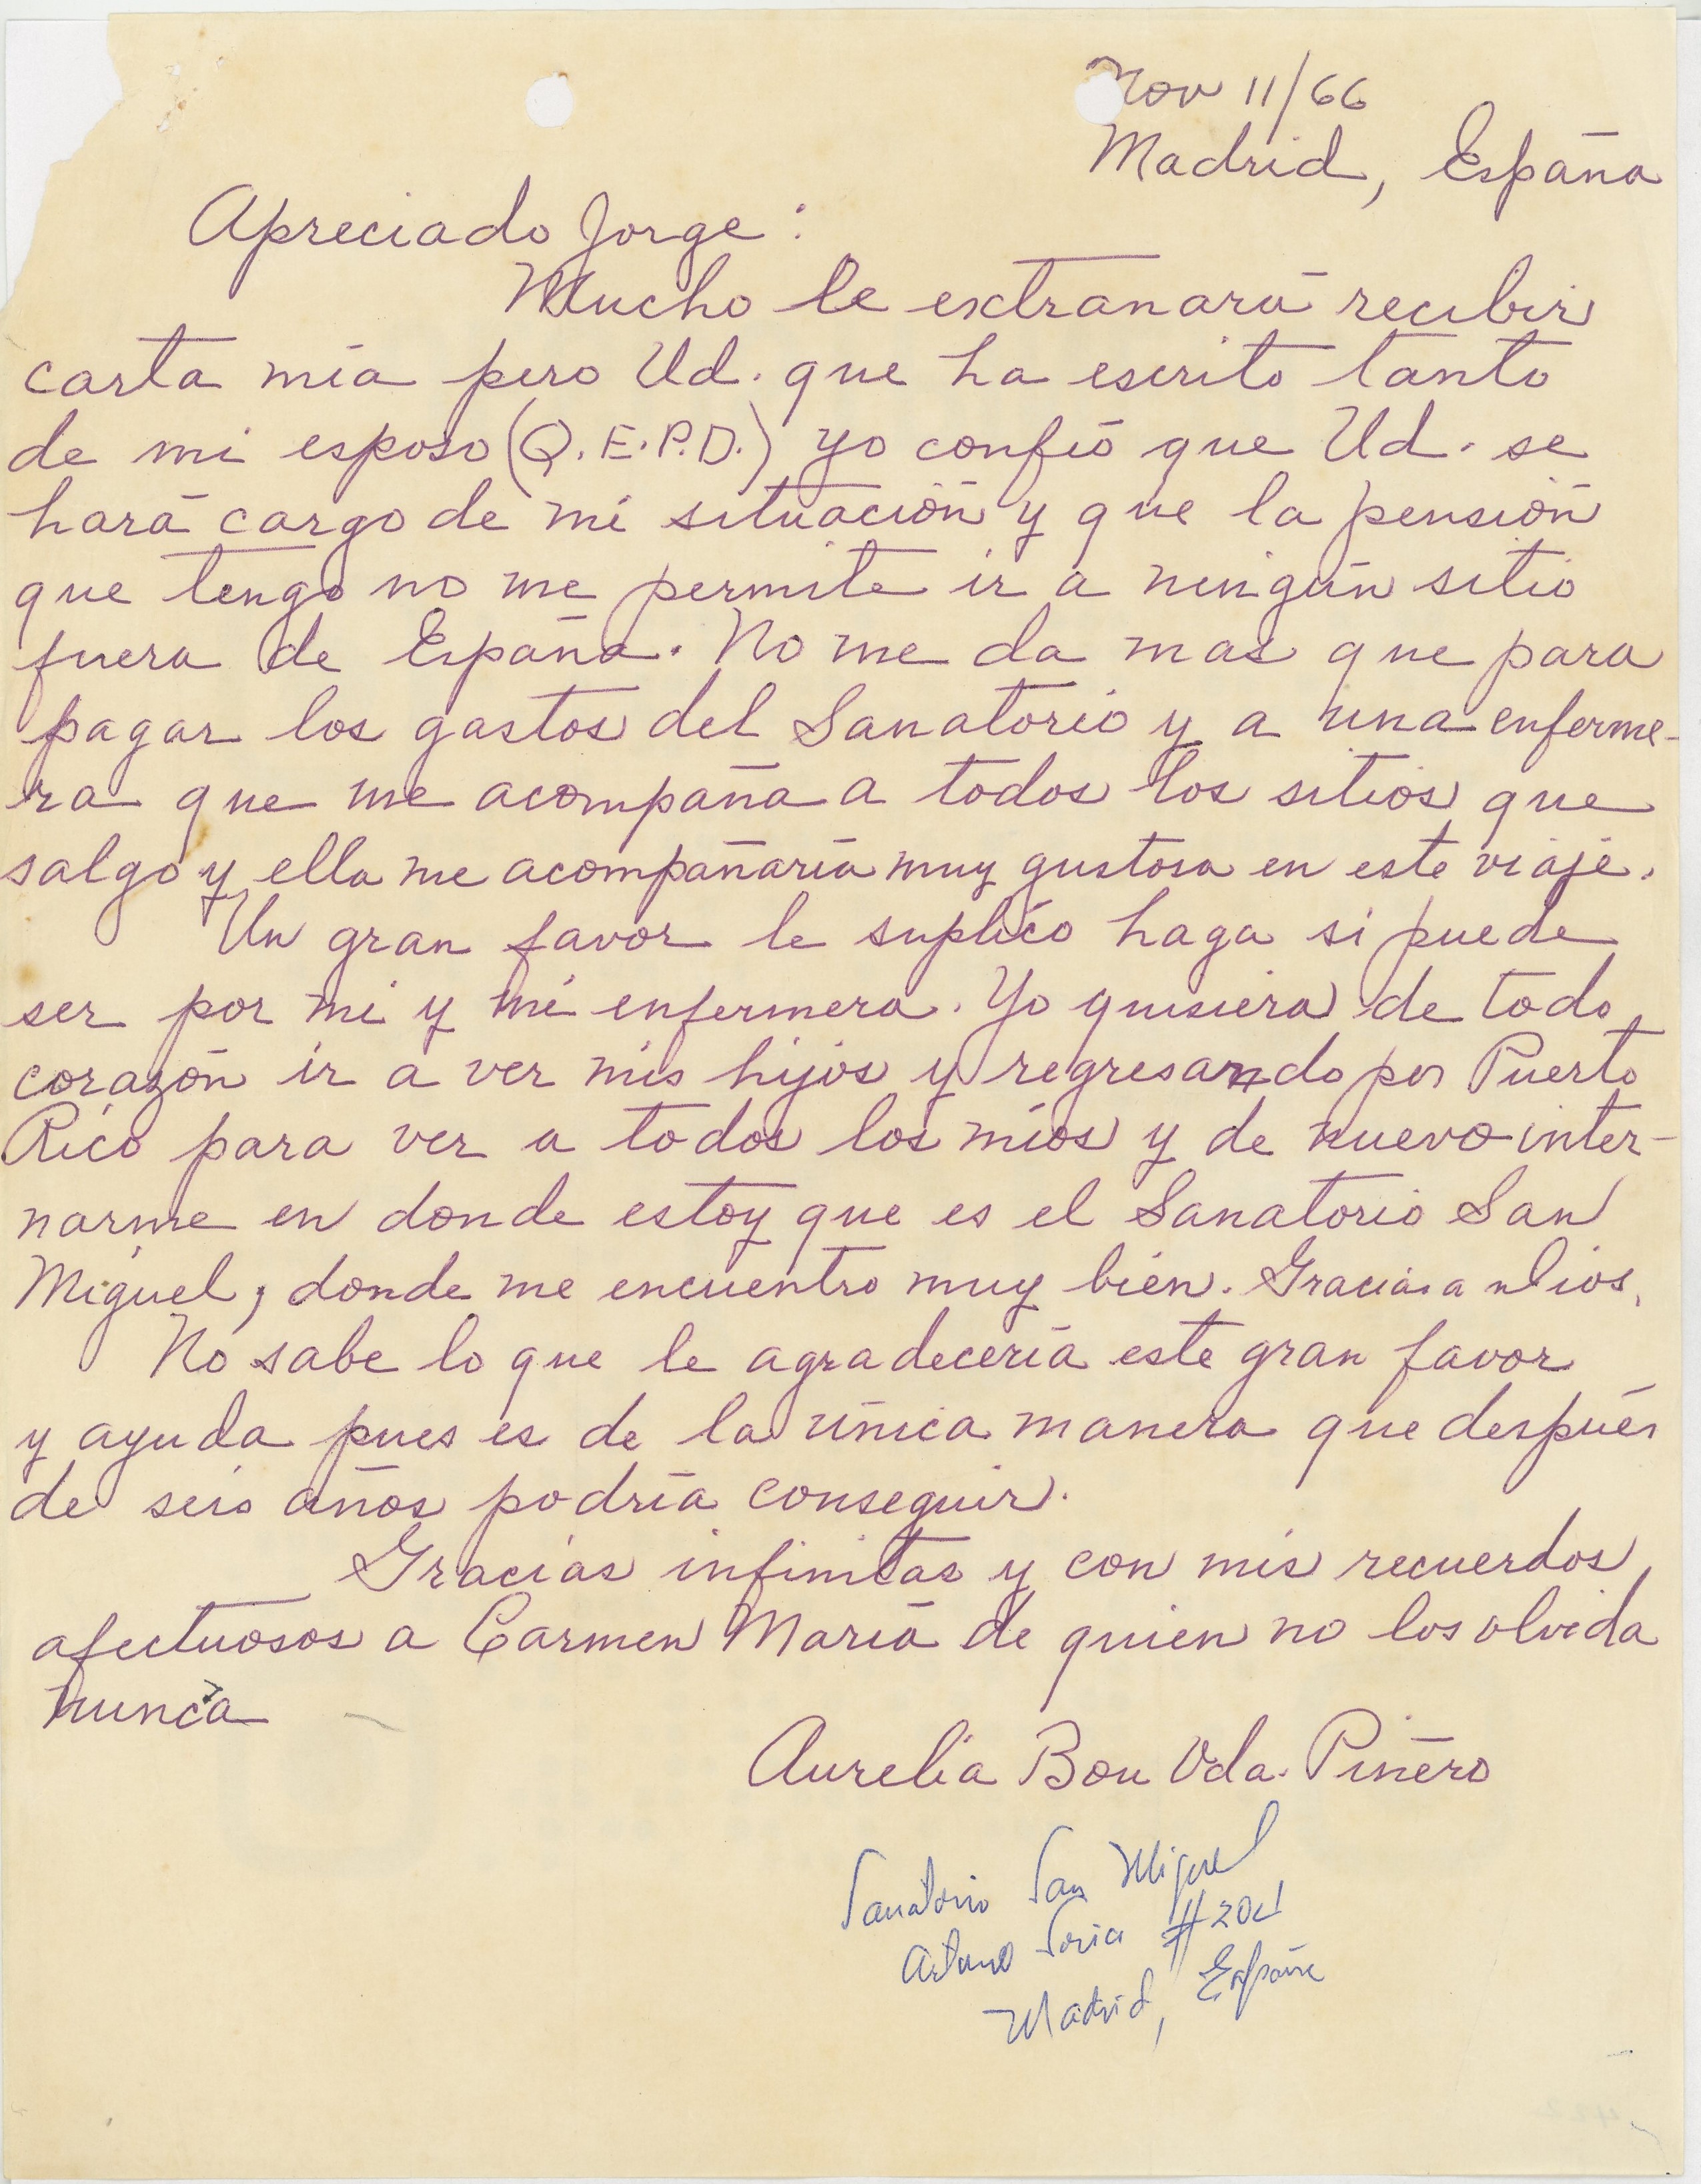 Nov 11/66
Madrid, España
Apreciado Jorge:
Mucho le extranará recibir
carta mía pero Ud. que ha escrito tanto
de mi esposo (Q.E.P.D.) yo confió que Ud. se
hará cargo de mi situación y que la pensión
que tengo no me permite ir a ningún sitio
fuera de España. No me da mas que para
pagar los gastos del Sanatorio y a una enferme-
ra que me acompaña a todos los sitios que
salgo y ella me acompañaría muy gustosa en este viaje.
Un gran favor le suplico haga si puede
ser por mi y mi enfermera. Yo quisiera de todo
corazón ir a ver mis hijos y regresando por Puerto
Rico para ver a todos los míos y de nuevo inter-
narme en donde estoy que es el Sanatorio San
Miguel, donde me encuentro muy bien. Gracias a Dios.
No sabe lo que le agradecería este gran favor
y ayuda pues es de la única manera que después
de seis años podría conseguir.
Gracias infinitas y con mis recuerdos
afectuosos a Carmen María de quien no los olvida
nunca
Aurelia Bou Vda. Piñero
Sanatorio San Miguel
Arturo Soria #204
Madrid, España